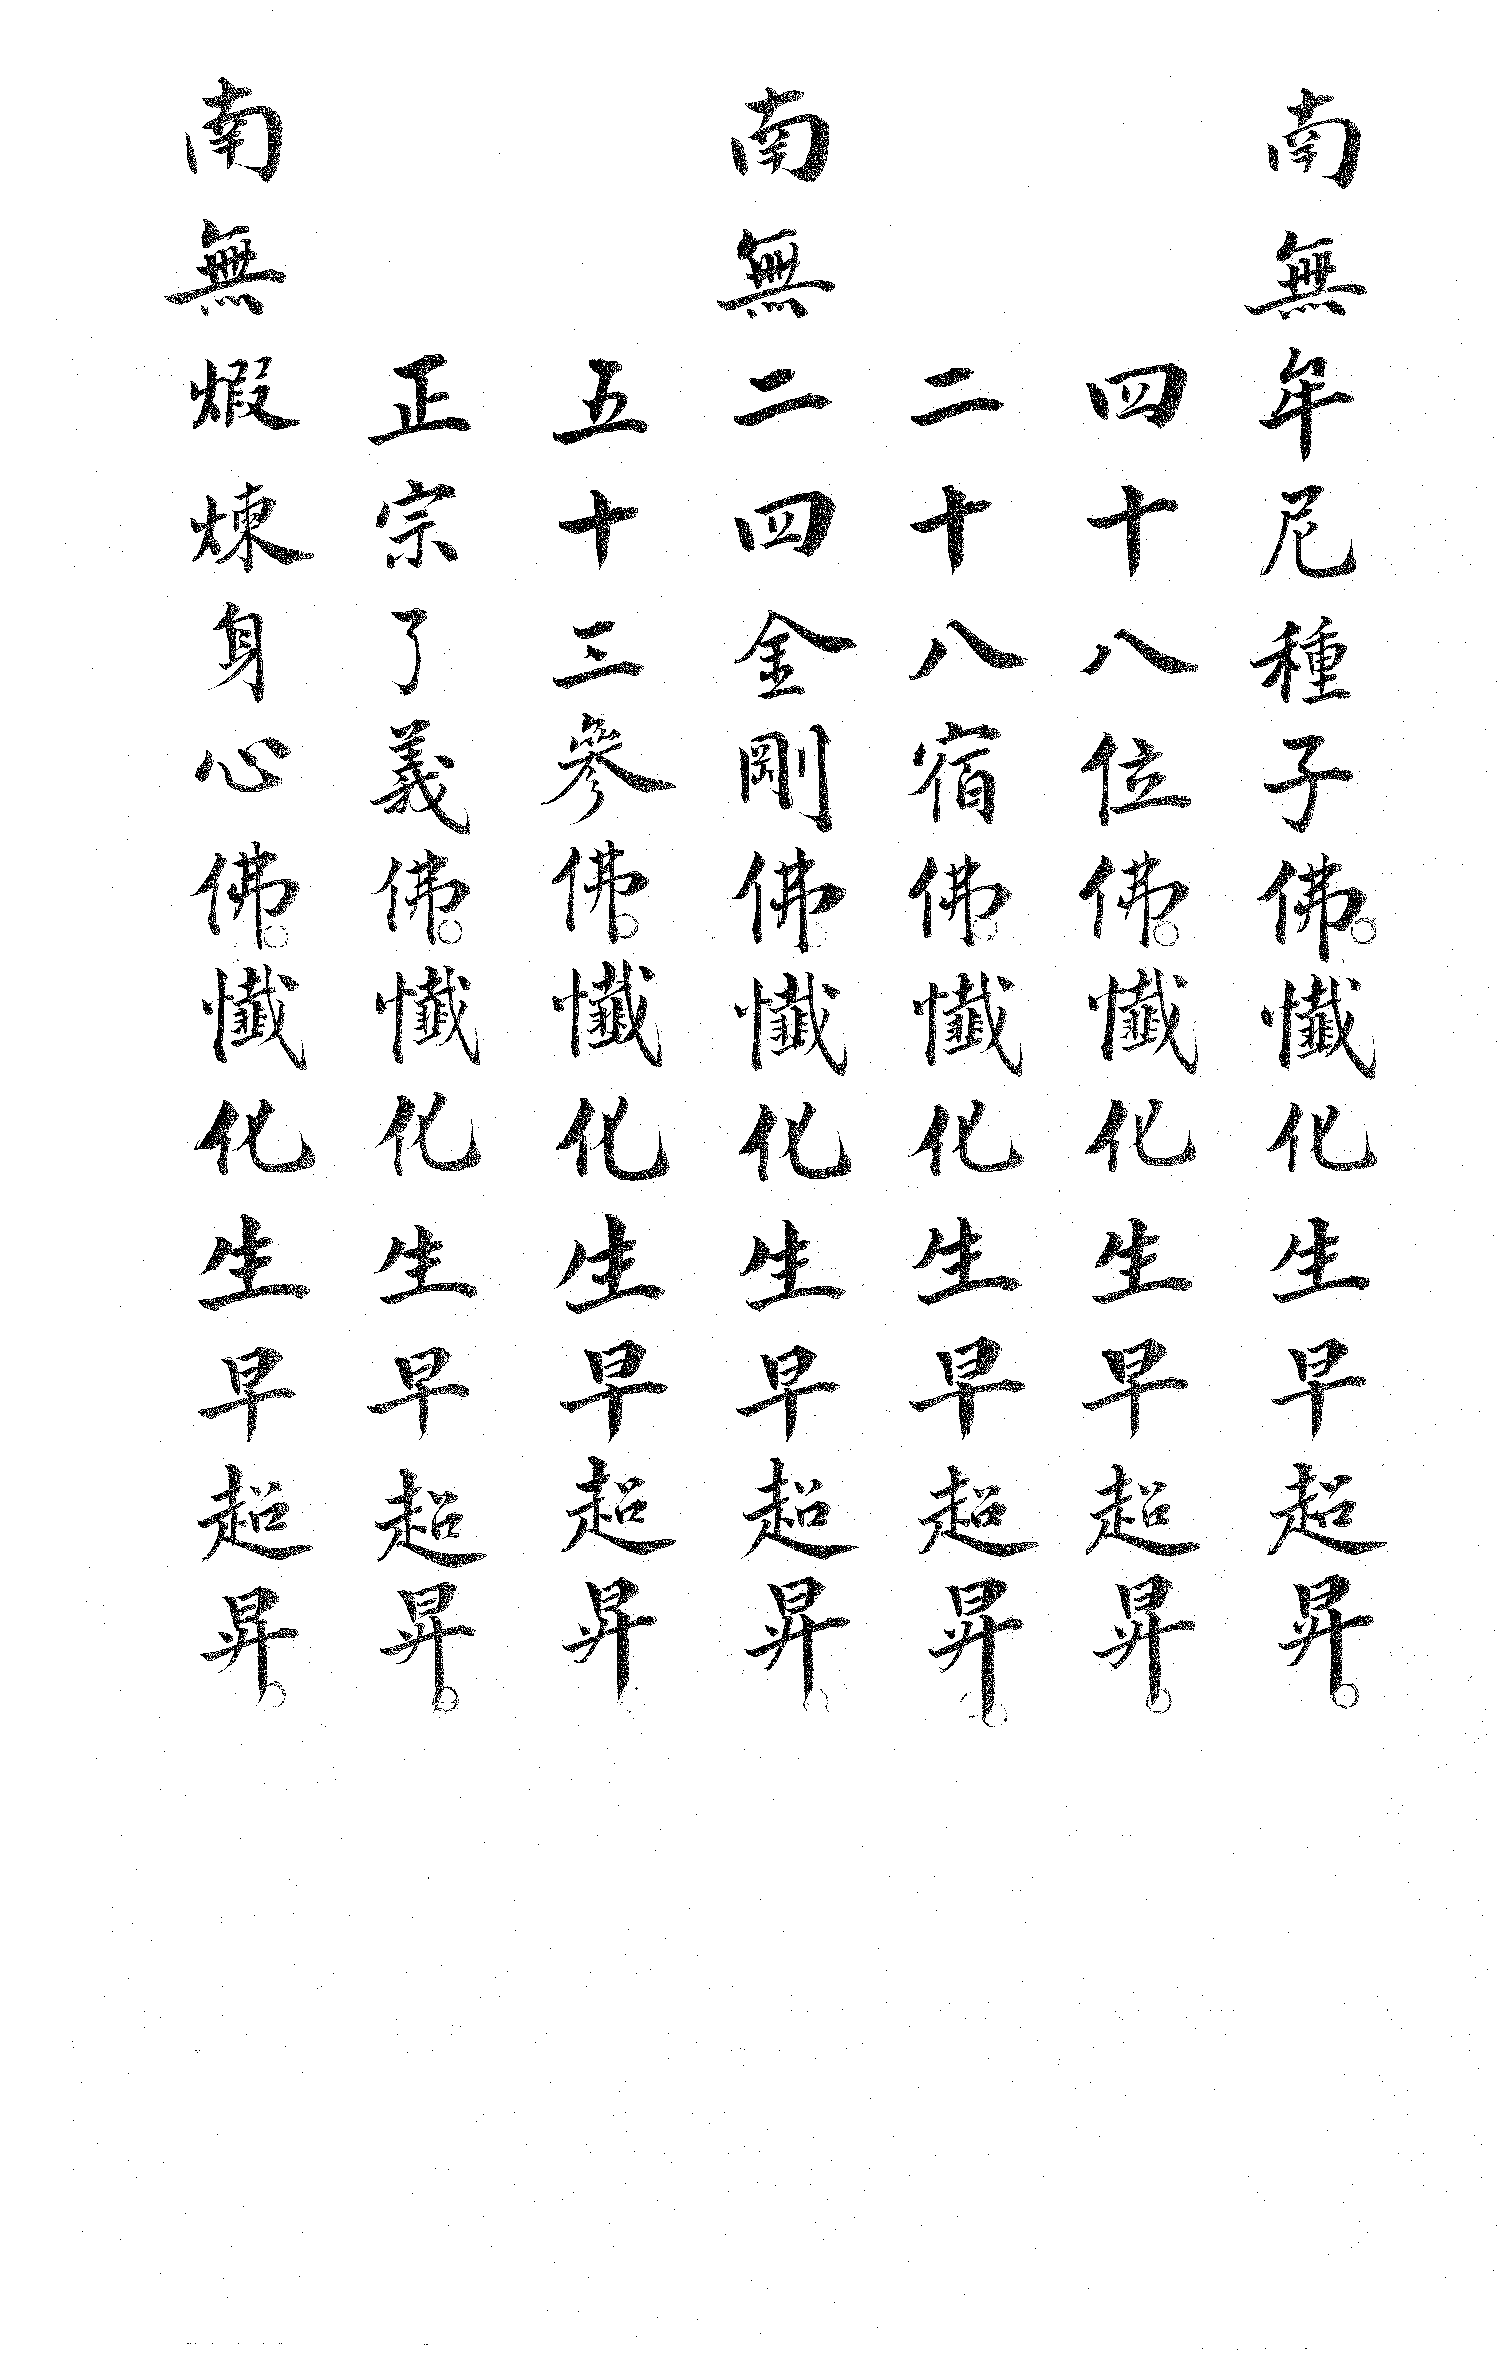 南無牟尼種子佛。懺化生早超昇。
四十八位佛。懺化生早超昇。
二十八宿佛。懺化生早超昇。
南無二四金剛佛。懺化生早超昇。
五十三參佛。懺化生早超昇。
正宗了義佛。懺化生早超昇。
南無煆煉身心佛。懺化生早超昇。